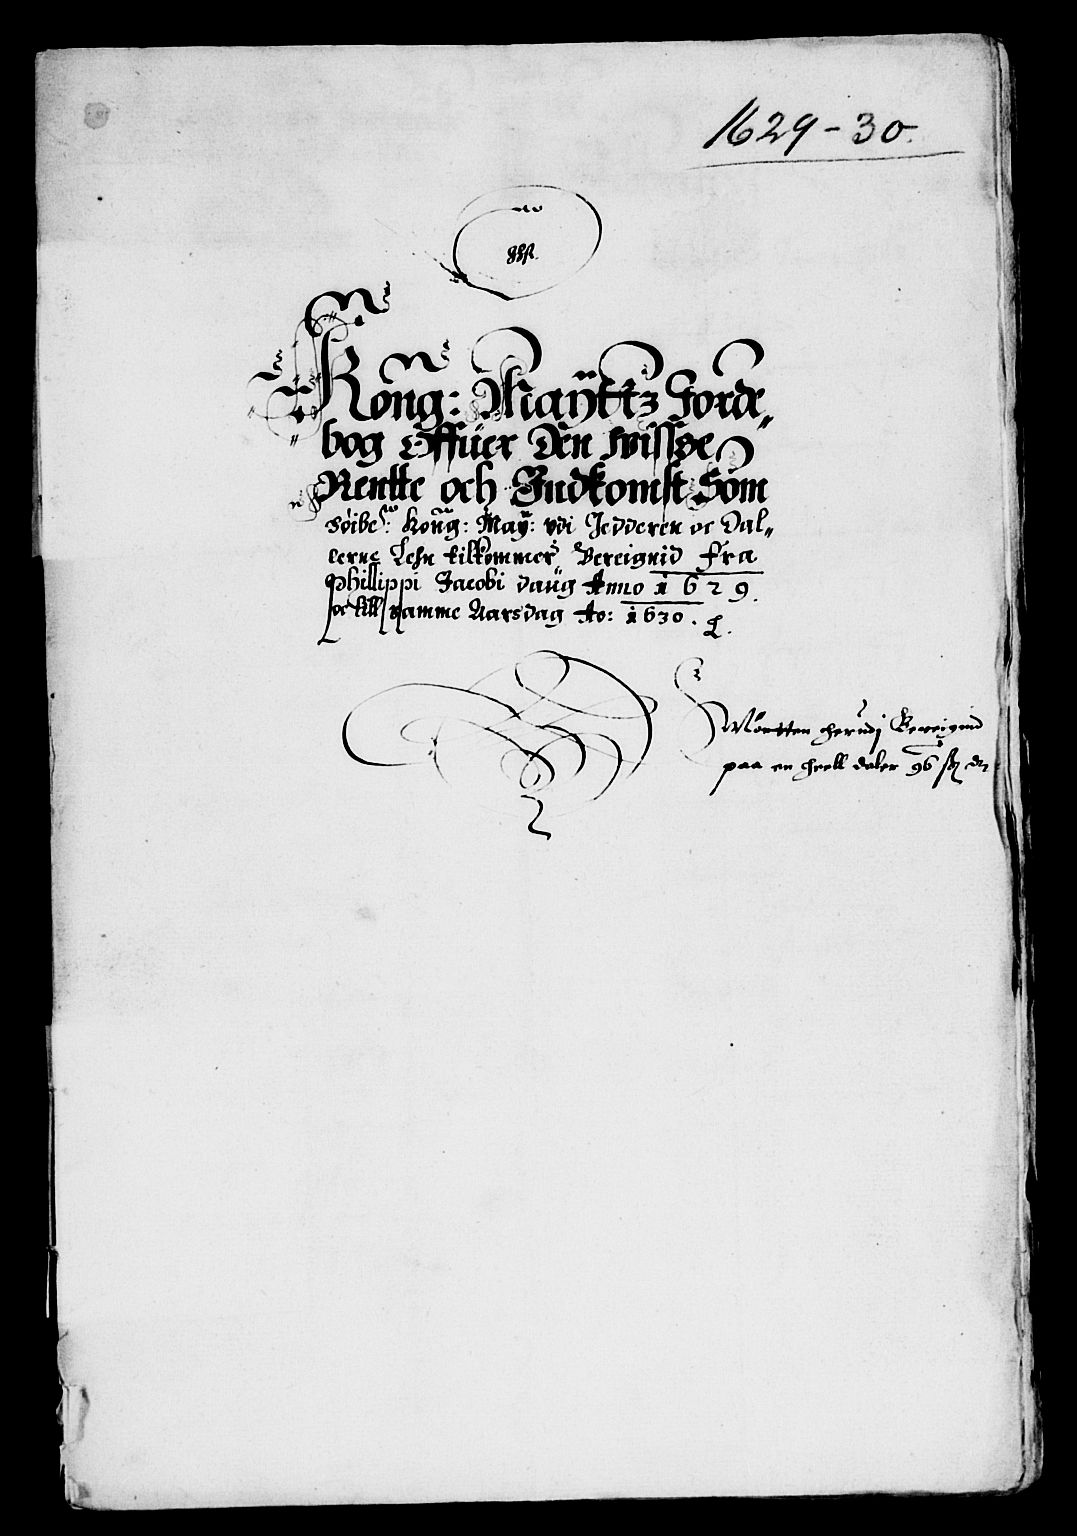 1629-30.
Kong: Maÿttz Jorde„
bog Offuer Den wissze
Rentte och Indkomst Som
høibe: Kong: May: vdi Jedderen oc Dal„
lerne Lehn tilkommer, Bereignid fra
Phillippi Jacobi daug Anno 1629.
oc till samme Aarsdag Ao: 1630.
Mønten herudj Bereigned
paa en heell daler 96 sk